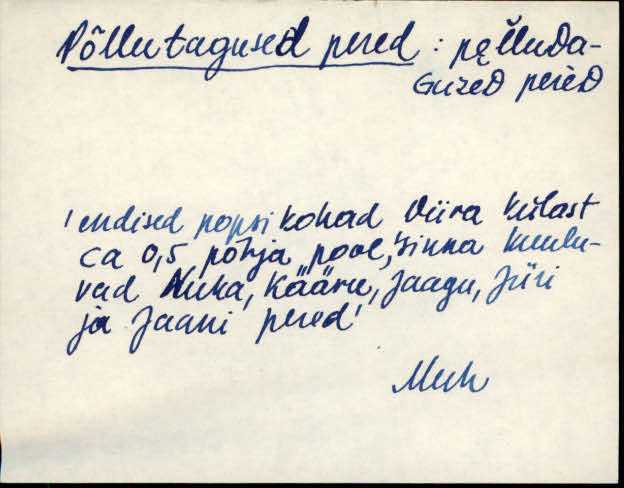 Põllutagused pered : pęlluDa-
GuzeD pereD
'endised popsikohad Viira külast
ca 0,5 põhja pool, sinna kuulu-
vad Nuka, Kääru, Jaagu, Jüri
ja Jaani pered'
Muh